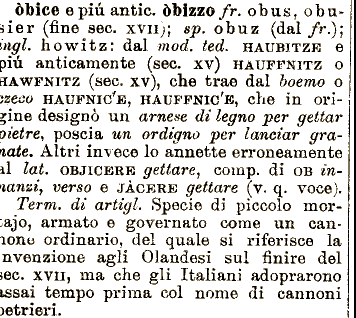 òbice e piú antic. òbizzo fr. obus, obu-
sier (fine sec. XVII); sp. obuz (dal fr.);
ingl. howitz: dal mod. ted. HAUBITZE e
piú anticamente (sec. XV) HAUFFNITZ o
HAWFNITZ (sec. XV), che trae dal boemo o
czeco HAUFNIC'E, HAUFFNIC'E, che in ori-
gine designò un arnese di legno per gettar
pietre, poscia un ordigno per lanciar gra-
nate. Altri invece lo annette erroneamente
al lat. OBJICERE gettare, comp. di OB in-
nanzi, verso e JÀCERE gettare (v. q. voce).
Term. di artigl. Specie di piccolo mor-
tajo, armato e governato come un can-
none ordinario, del quale si riferisce la
invenzione agli Olandesi sul finire del
sec. XVII, ma che gli Italiani adoprarono
assai tempo prima col nome di cannoni
petrieri.